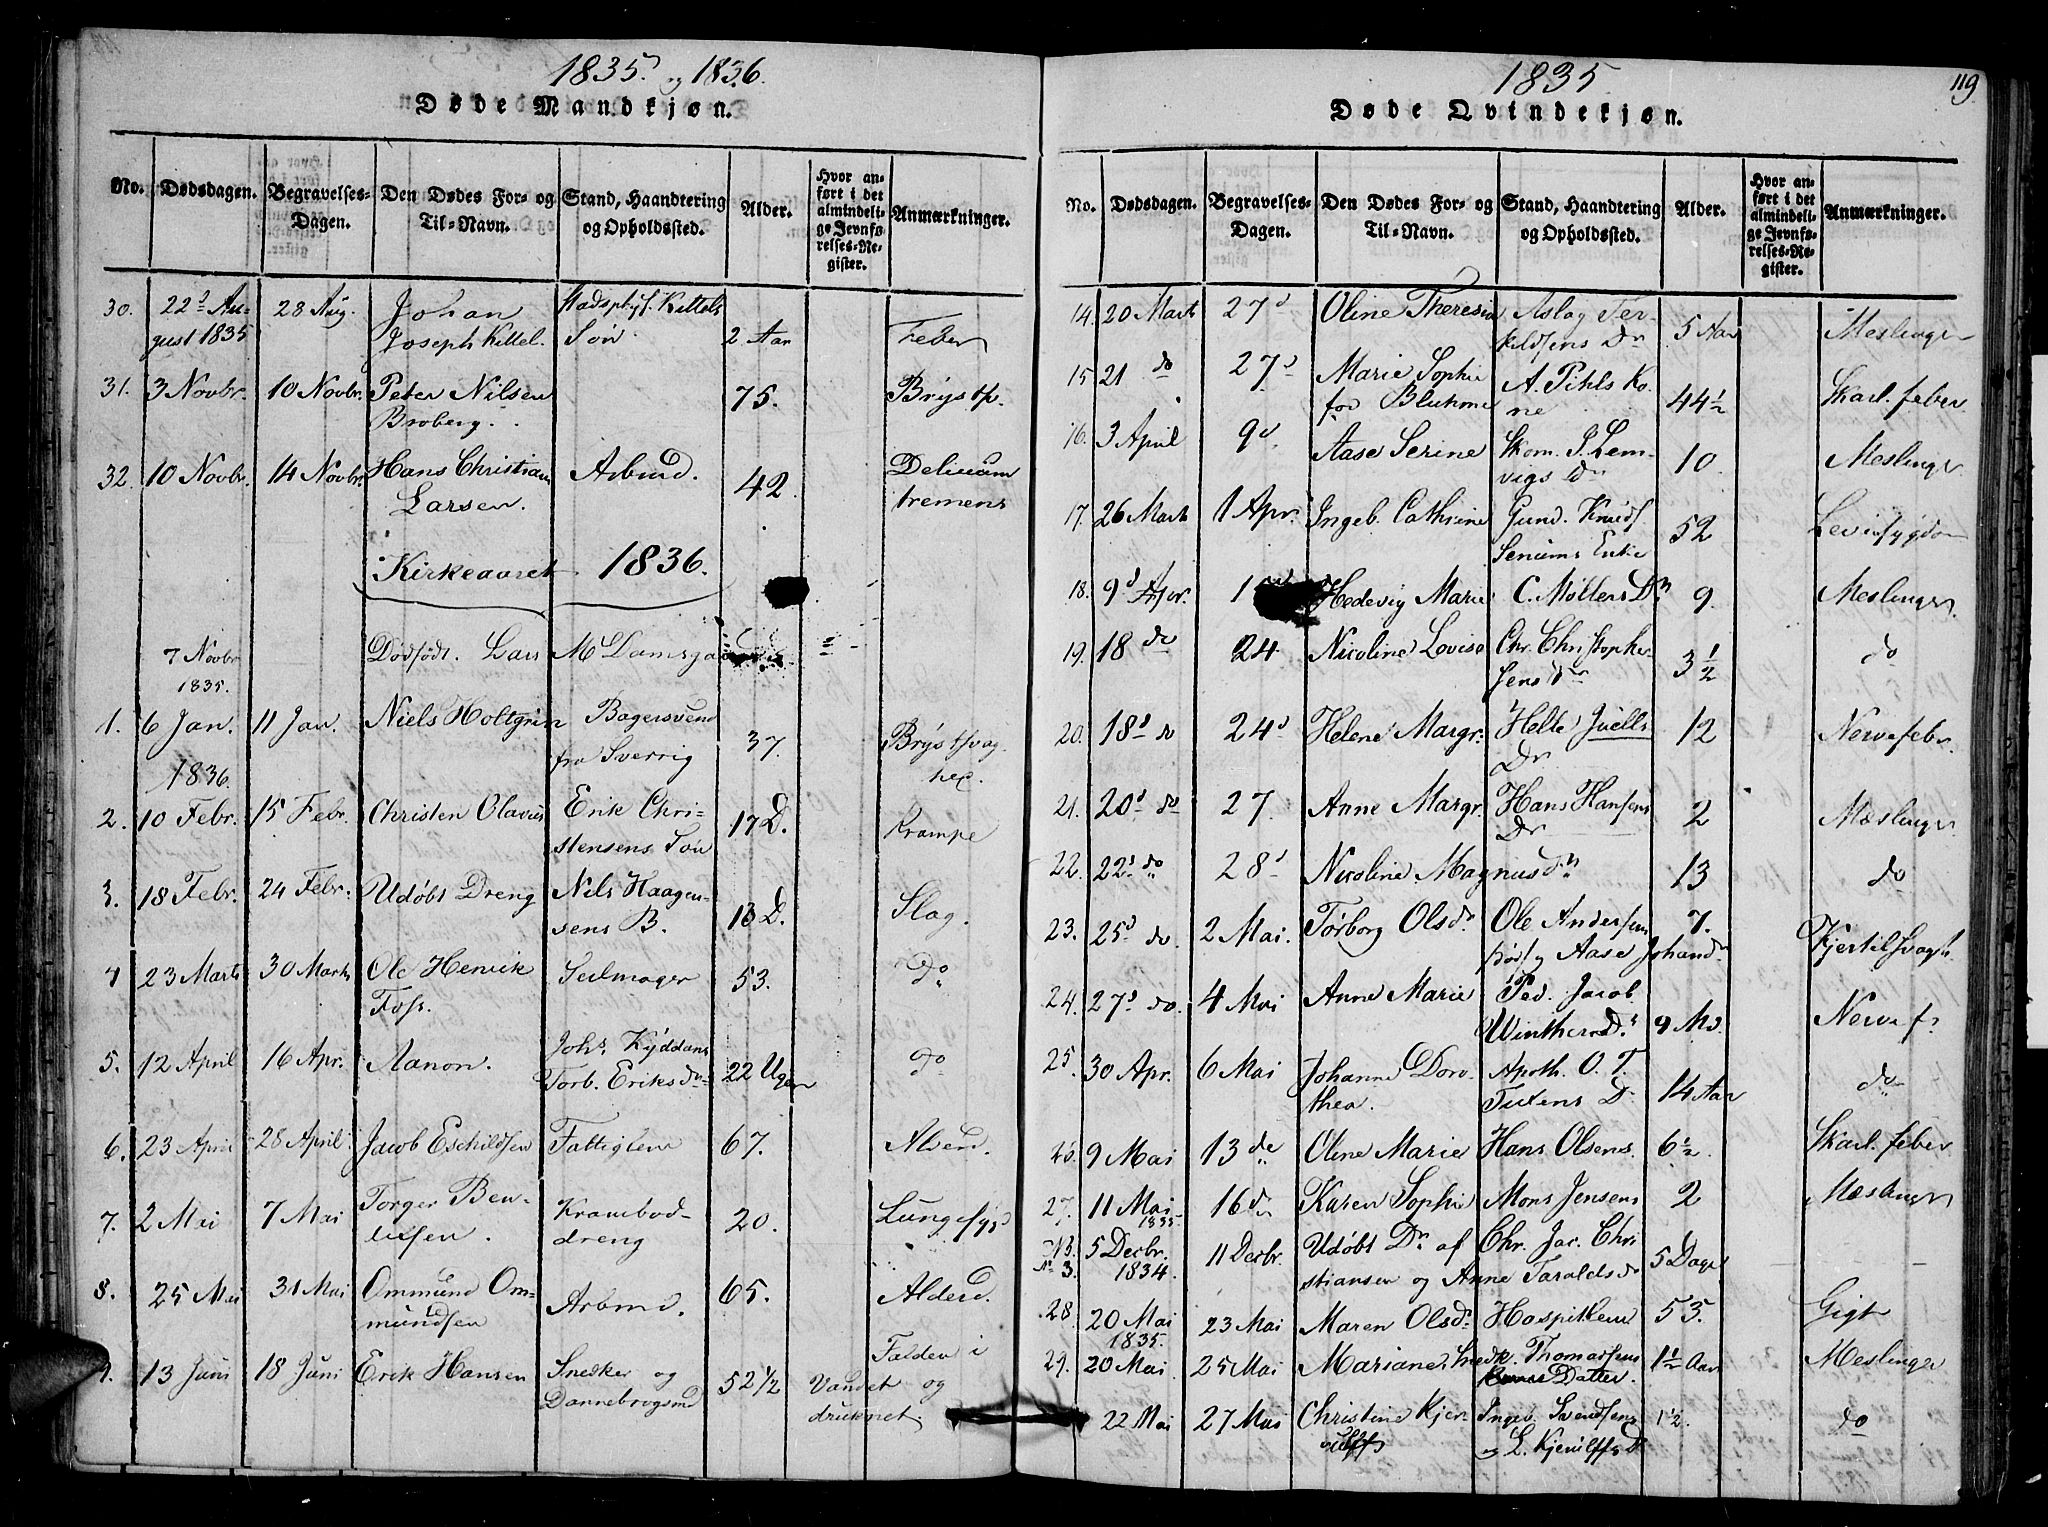 1835 og 1836.
Døde Mandkjøn.
No. Dødsdagen. Begravelses-Dagen. Den Dødes For- og Til-Navn. Stand, Haandtering og Opholdssted. Alder. Hvor anført i det almindelige Jevnførelses-Register. Anmærkninger.
30. 22d August 1835 28 Aug. Johan Joseph Kittel. Stadsphys. Kittels Søn. 2 Aar Feber
31. 3 Novbr. 10 Novbr. Peter Nilsen Broberg. 75. Brystf.
32. 10 Novbr. 14 Novbr. Hans Christian Larsen. Arbmd. 42. Delirium tremens
Kirkeaaret 1836.
7 Novbr 1835. Dødfødt. Lars M Damsga
1. 6 Jan. 1836. 11 Jan. Niels Holtgrin Bagersvend fra Sverrig 37. Brystsvaghed.
2. 10 Febr. 15 Febr. Christen Olavus Erik Christensens Søn 17 D. Krampe
3. 18 Febr. 24 Febr. Udøbt Dreng Nils Haagensens B. 13 D. Slag.
4 23 Marts 30 Marts Ole Henrik Foss. Seilmager 53. do
5. 12 April 16 Apr. Aanon. Johs. Kyddans Torb. Eriksdr 22 Uger do
6. 23 April 28 April Jacob Eschildsen Fattiglem 67. Alderd.
7. 2 Mai 7 Mai Torger Bentsen. Kramboddreng 20. Lungesyg
8. 25 Mai 31 Mai Ommund Ommundsen Arbmd. 65. Alderd.
9. 13 Juni 18 Juni Erik Hansen Snedker og Dannebrogsmd 52 1/2 Falden i Vandet og druknet.
1835
119
Døde Qvindekjøn.
No. Dødsdagen. Begravelses-Dagen. Den Dødes For- og Til-Navn. Stand, Haandtering og Opholdssted. Alder. Hvor anført i det almindelige Jevnførelses-Register. Anmærkninger.
14. 20 Marts 27d Oline Theresia Aslag Terkildsens Dr 5 Aar Meslinger
15 21 do 27d Marie Sophie fød Bluhme A. Pihls Kone 44 1/2 Skarl. feber
16. 3 April 9d Aase Serine Skom. J. Lemvigs Dr 10. Meslinger
17. 26 Marts 1 Apr. Ingeb. Cathrine Gund. Knuds Senums Enke 52
18. 9d Apr. 1 Hedevig Marie C. Møllers Dr 9. Meslinger
19. 18 do 24 Nicoline Lovise Chr. Christophersens dr 3 1/2 do
20. 18d do 24d Helene Margr. Helle Juells Dr 12 Nervefebr.
21. 20d do 27. Anne Margr. Hans Hansens Dr 2 Mæslinger
22. 22d do 28d Nicoline Magnusdr 13 do
23. 25d do. 2 Mai. Torborg Olsdr Ole Andersen og Aase Johandr 7. Kjertelsvagh.
24. 27d do. 4 Mai Anne Marie Ped. Jacob Wintherr D. 9 Md. Nervef
25. 30 Apr. 6 Mai Johanne Dorothea. Apoth. O. T. Tuxens Dr 14 Aar do
26. 9 Mai 13 do Oline Marie Hans Olsens 6 1/2. Skarl. feber
27. 11 Mai 1835 16 do Karen Sophie Mons Jensens 2 Mæslinger
NB. No 3. 5 Decbr. 1834. 11 Decbr. Udøbt Dr af Chr. Jac. Christiansen og Anne Taraldsdr 5 Dage
28. 20 Mai 1835. 23 Mai Maren Olsdr Hospitlem 53. Gigt
29. 20 Mai 25 Mai Mariane Snedk. Thomassens Datter. 1 1/2 Aar Meslinger
22 Mai 27 Mai Christine Kjerulff Ingeb. Svendsen og L. Kjerulffs D 1 1/2. do